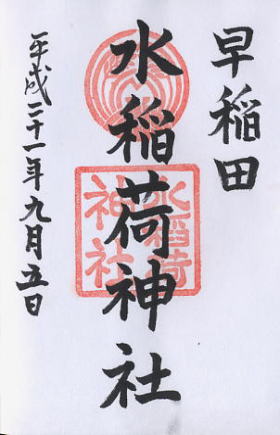 早稲田
水稲荷神社
平成二十一年九月五日
水稲荷
神社